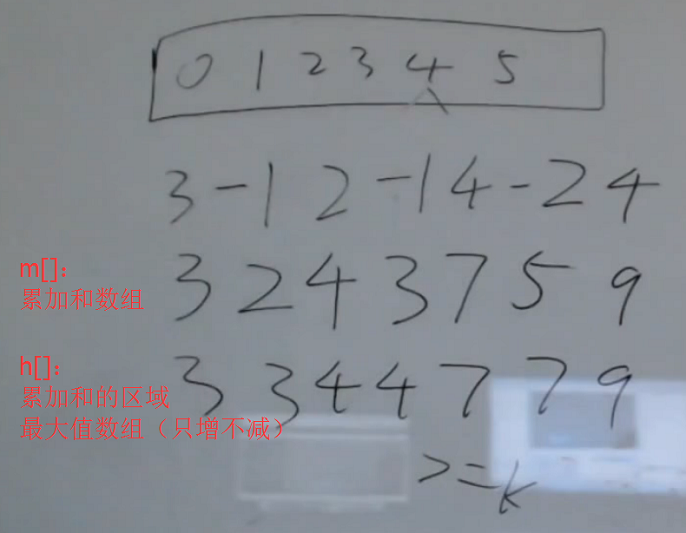 0 1 2 3 4 5
3 -1 2 -1 4 -2 4
m[]:
累加和数组
3 2 4 3 7 5 9
h[]:
累加和的区域
最大值数组（只增不减）
3 3 4 4 7 7 9
>=k